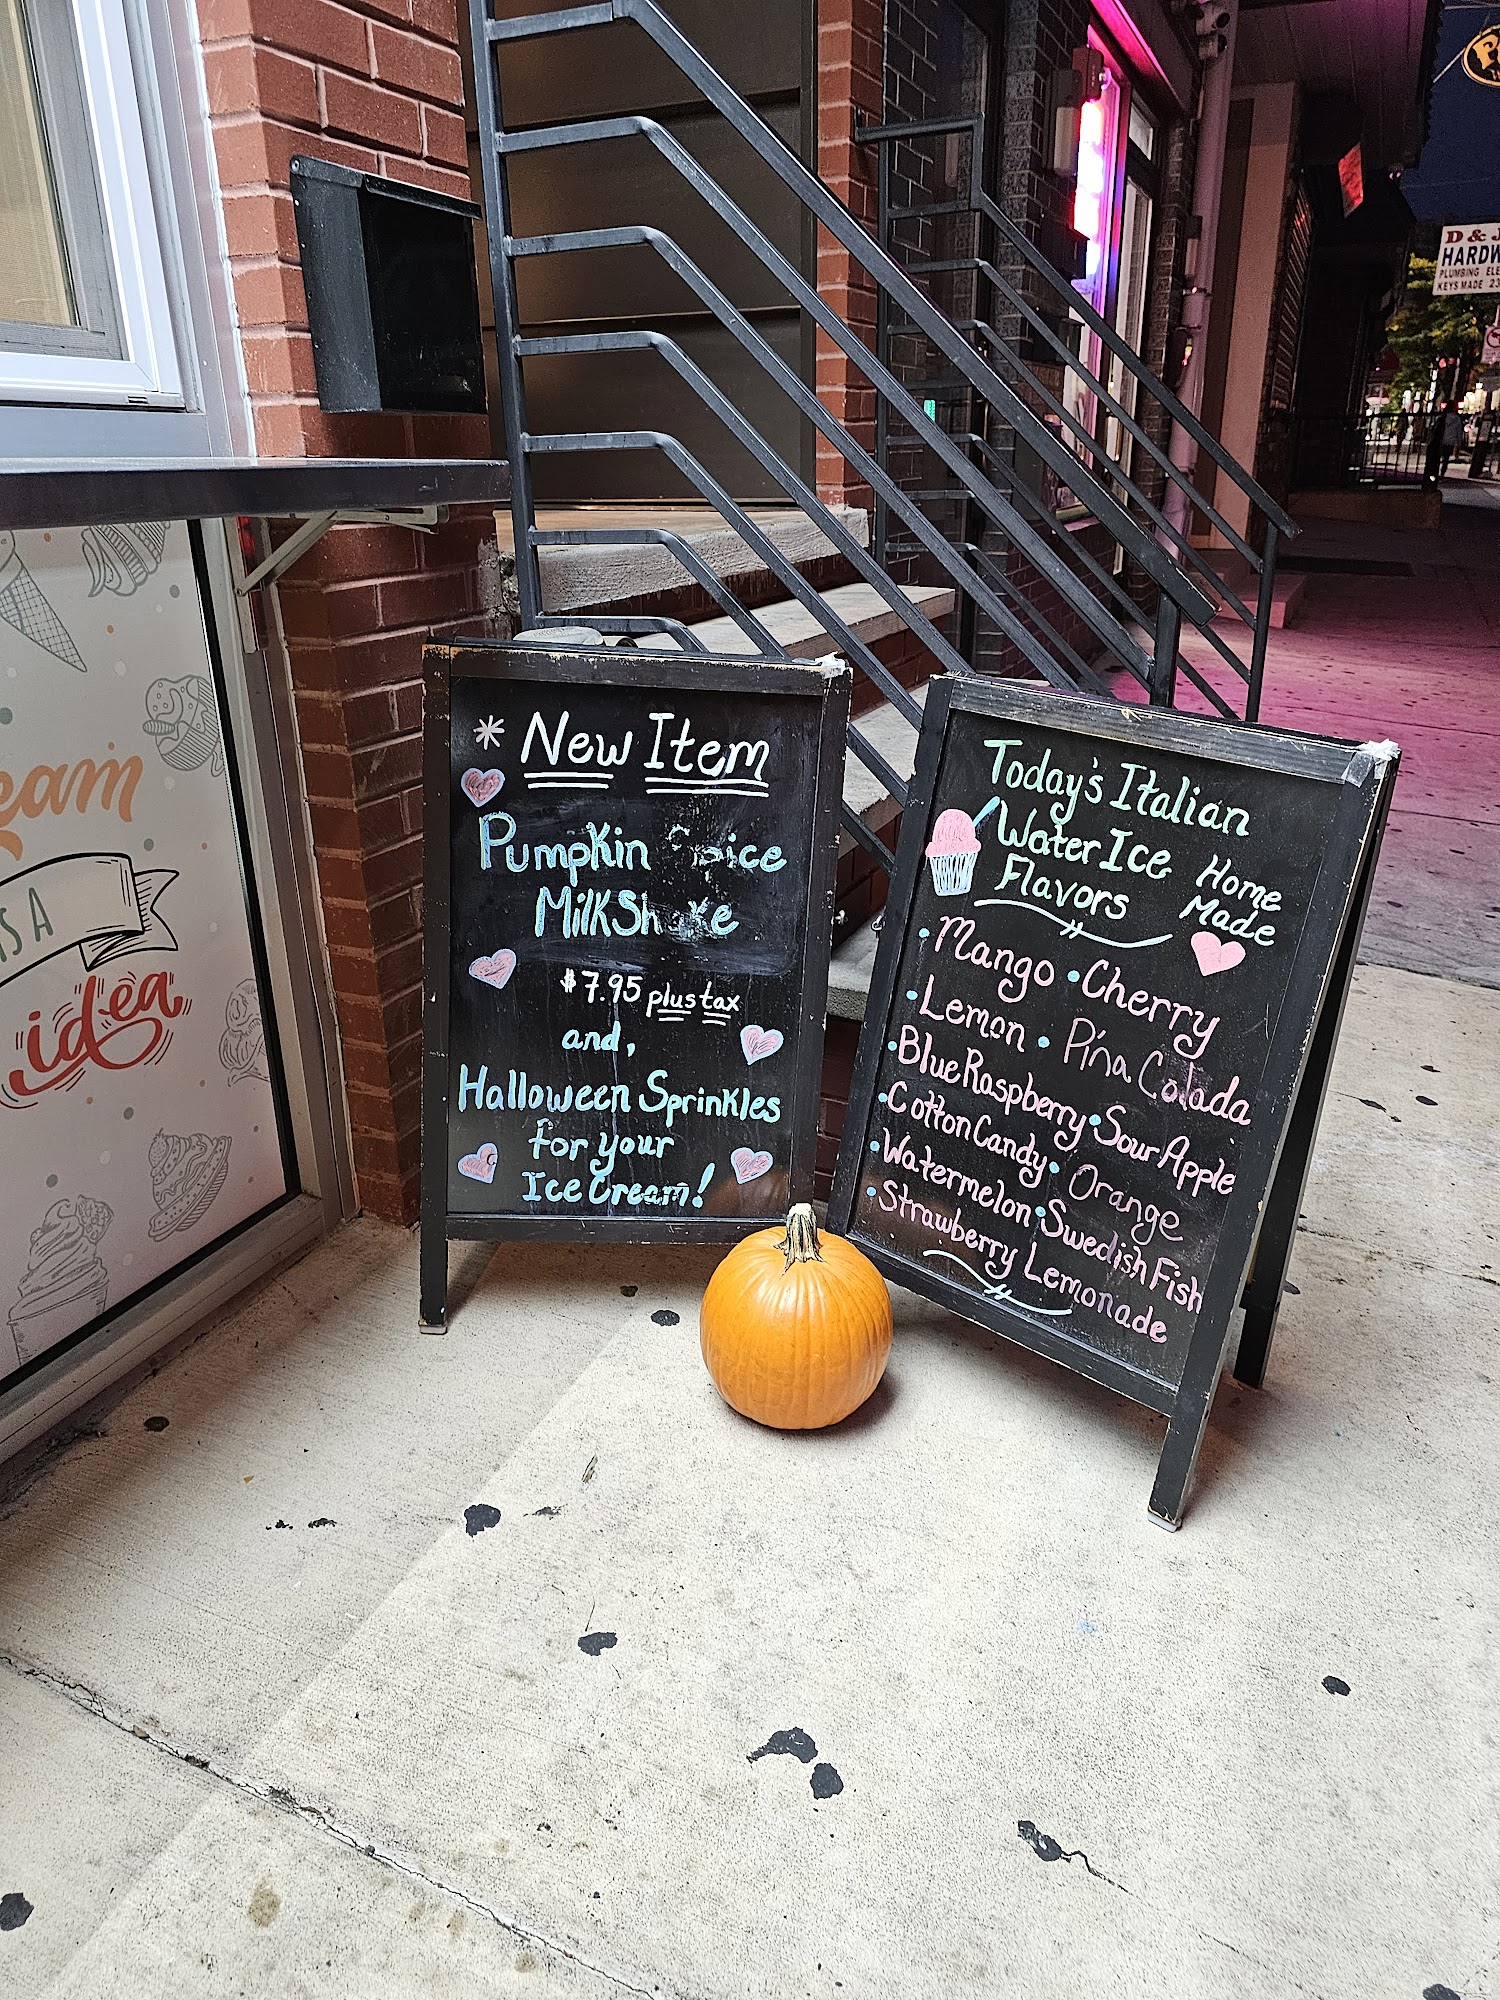 New Item
Pumpkin Spice
MilkShake
$7.95 plus tax
and,
Halloween Sprinkles
for your
Ice Cream!
Today's Italian
Water Ice
Flavors
Home
Made
• Mango • Cherry
• Lemon • Pina Colada
• Blue Raspberry • Sour Apple
• Cotton Candy • Orange
• Watermelon • Swedish Fish
• Strawberry Lemonade
eam
IS A
idea
D & J
HARDW
PLUMBING ELE
KEYS MADE 23